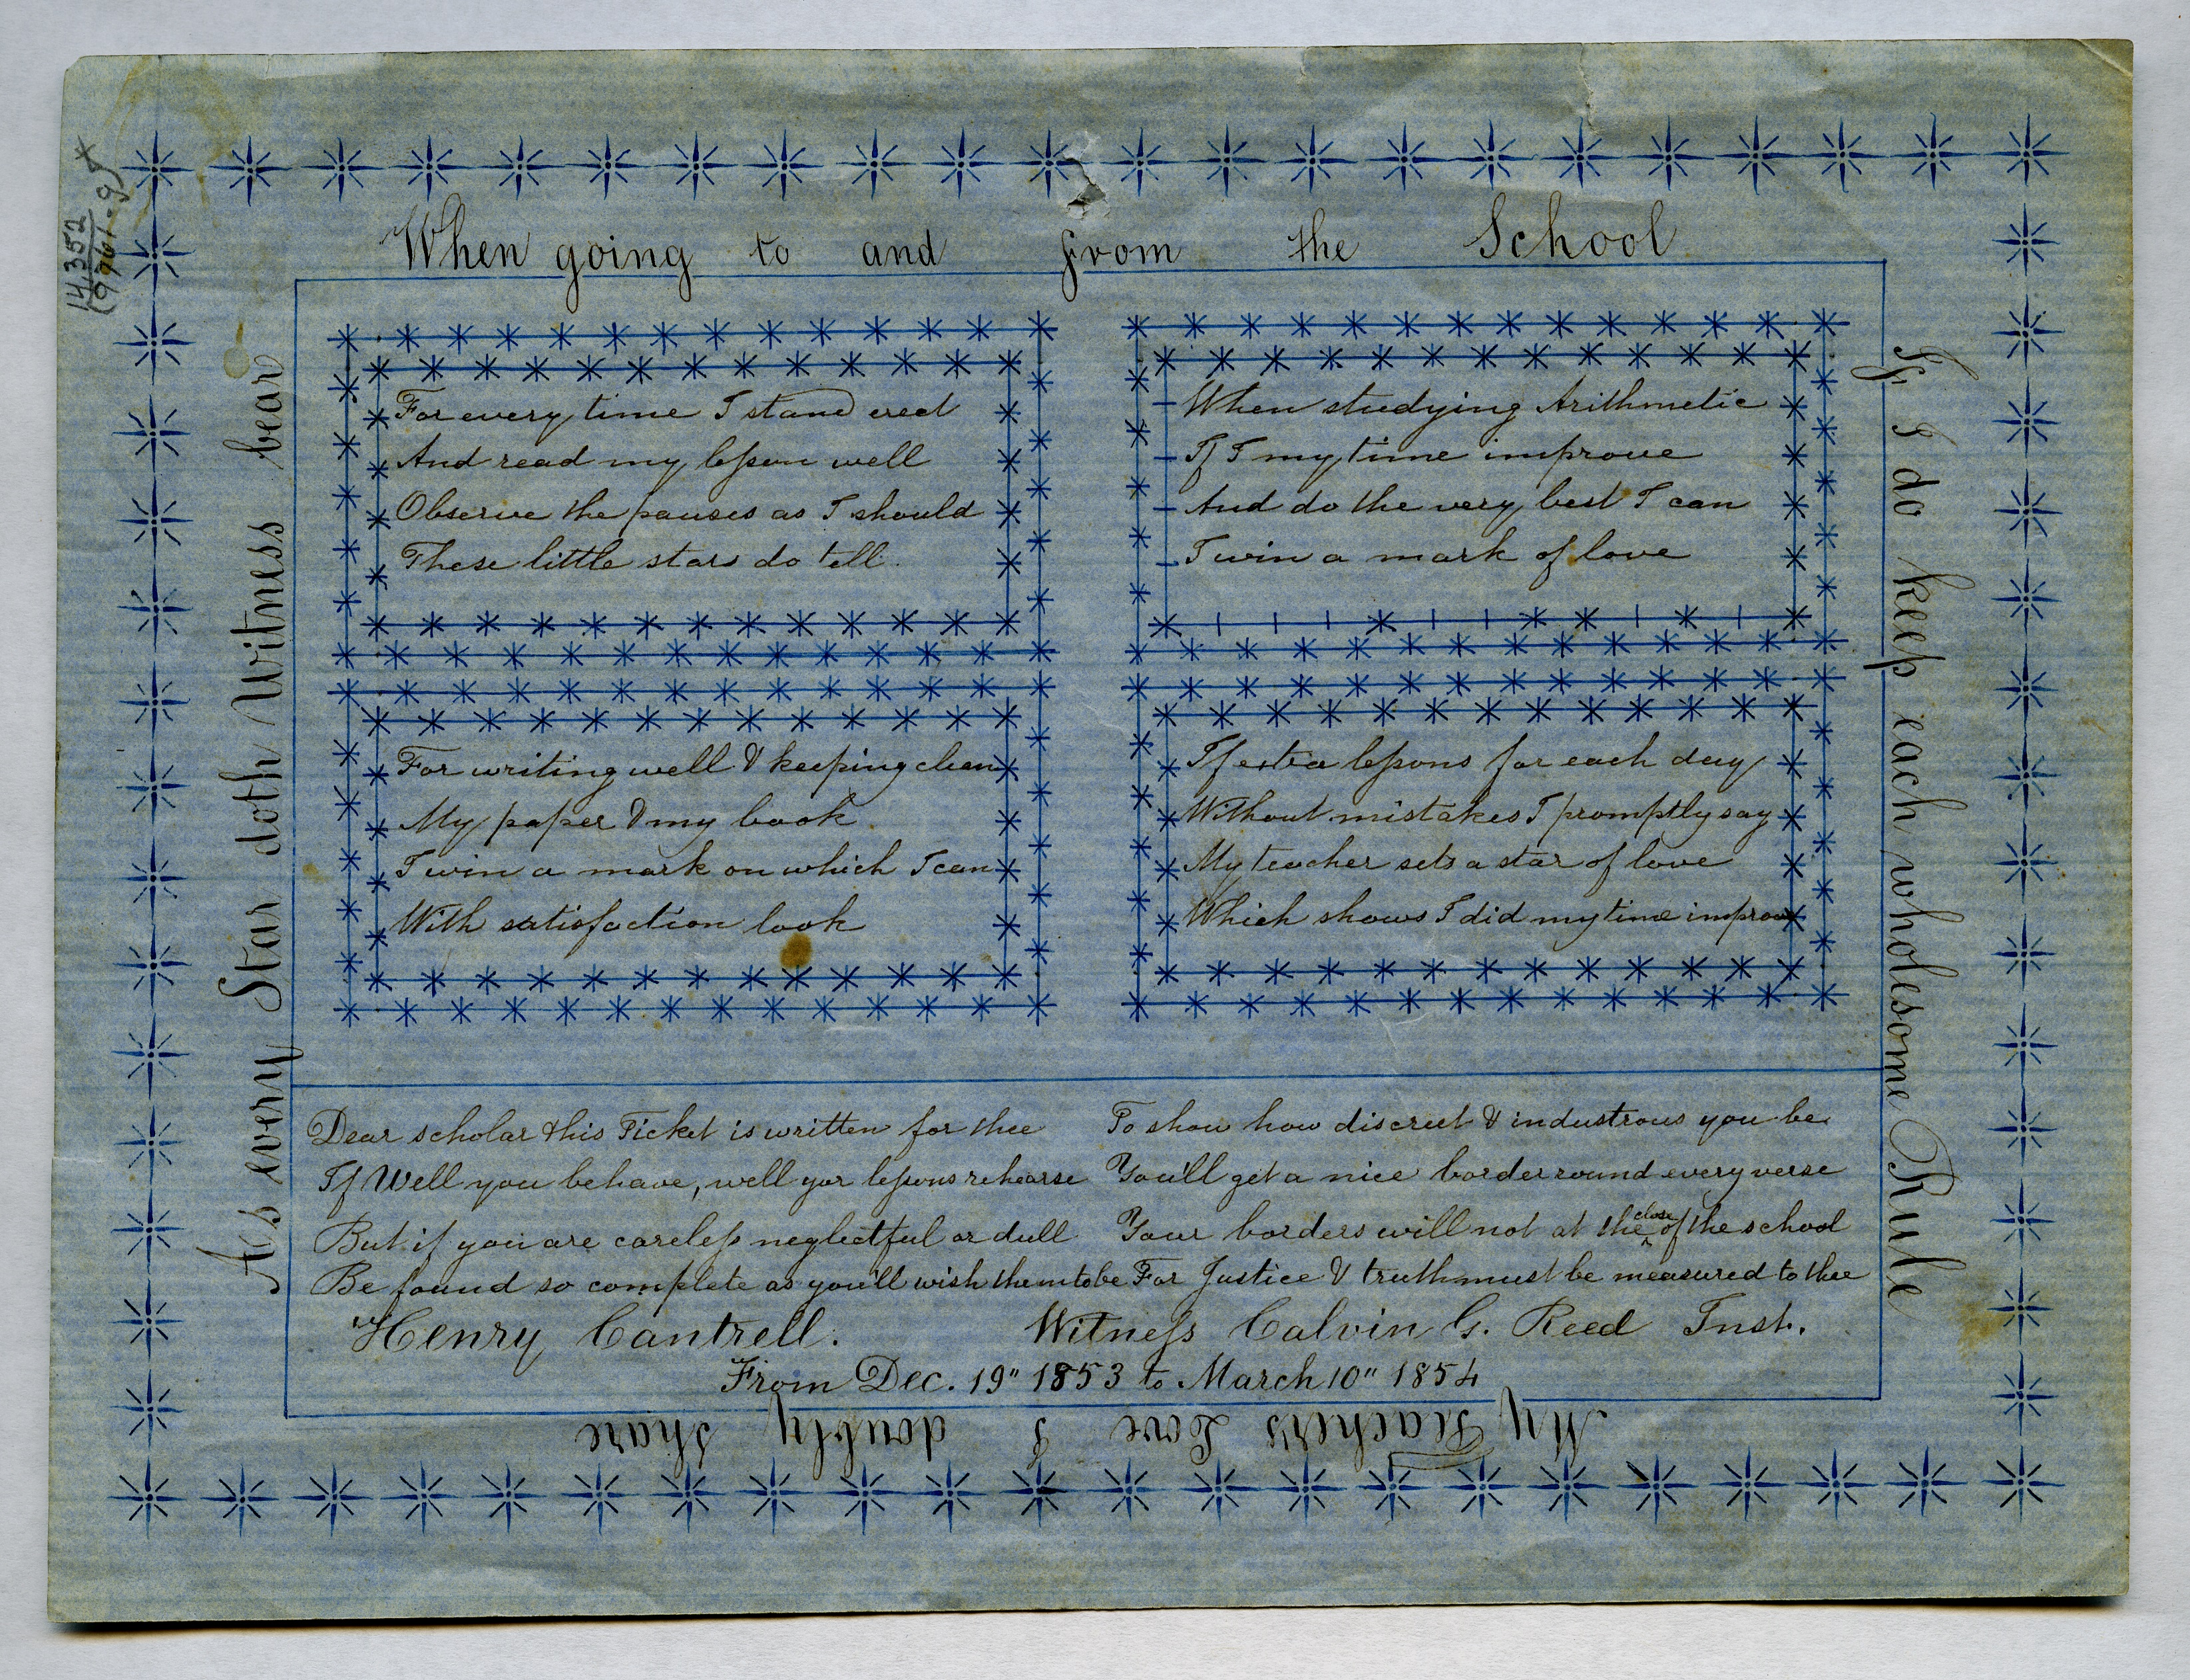 When going to and from the School
If I do keep each wholesome Rule
My Teacher's Love I doubly share
As every Star doth Witness bear
14,352
(9961-9)
For every time I stand erect
And read my leſson well
Observe the pauses as I should
These little stars do tell.
When studying Arithmetic
If I my time improve
And do the very best I can
I win a mark of love
For writing well & keeping clean
My paper & my book
I win a mark on which I can
With satisfaction look
If extra leſsons for each day
Without mistakes I promptly say
My teacher sets a star of love
Which shows I did my time improve
Dear scholar this Ticket is written for thee To show how discreet & industrous you be
If Well you behave, well yor leſsons rehearse You'll get a nice border round every verse
But if you are careleſs neglectful or dull Your borders will not at the close of the school
Be found so complete as you'll wish them to be For Justice & truth must be measured to thee
Henry Cantrell. Witneſs Calvin G. Reed Inst.
From Dec. 19" 1853 to March 10" 1854